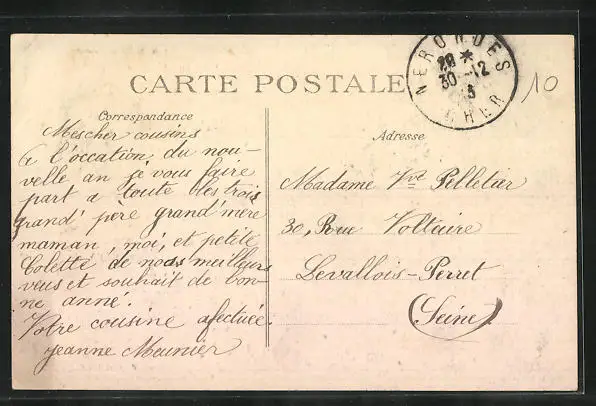 CARTE POSTALE
NERONDES
CHER
30-12
10
Correspondance
Mes cher cousins
a l'occation du nou-
velle an je vous faire
part a toute les trois
grand' père grand' mère
maman, moi, et petite
Colette de nos meilleurs
veus et souhait de bon-
ne anné.
Votre cousine afectuée.
Jeanne Meunier
Adresse
Madame Vve Pelletier
30, Rue Voltaire
Levallois-Perret
(Seine)